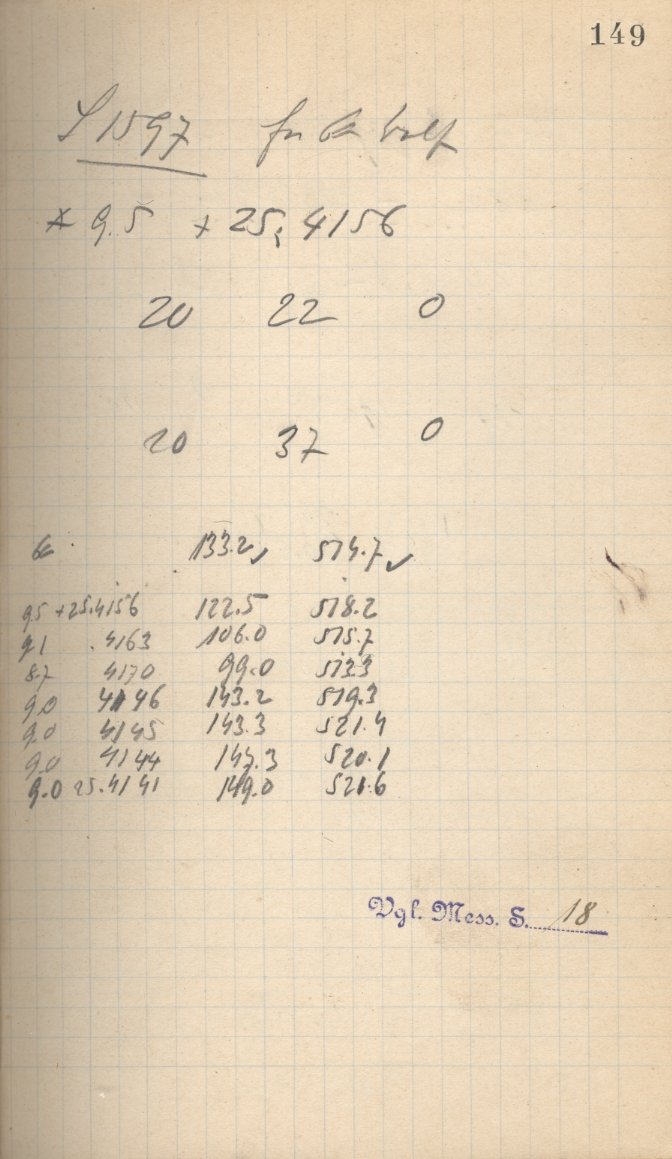 149
S 1597 für Wolf
* 9.5 + 25, 4156
20 22 0
20 37 0
133.2 ✓ 514.7 ✓
9.5 +25.4156 122.5 518.2
9.1 .4163 106.0 515.7
8.7 4170 99.0 513.3
9.0 4146 143.2 519.3
9.0 4145 143.3 521.4
9.0 4144 147.3 520.1
9.0 25.4141 149.0 521.6
Vgl. Mess. S. 18